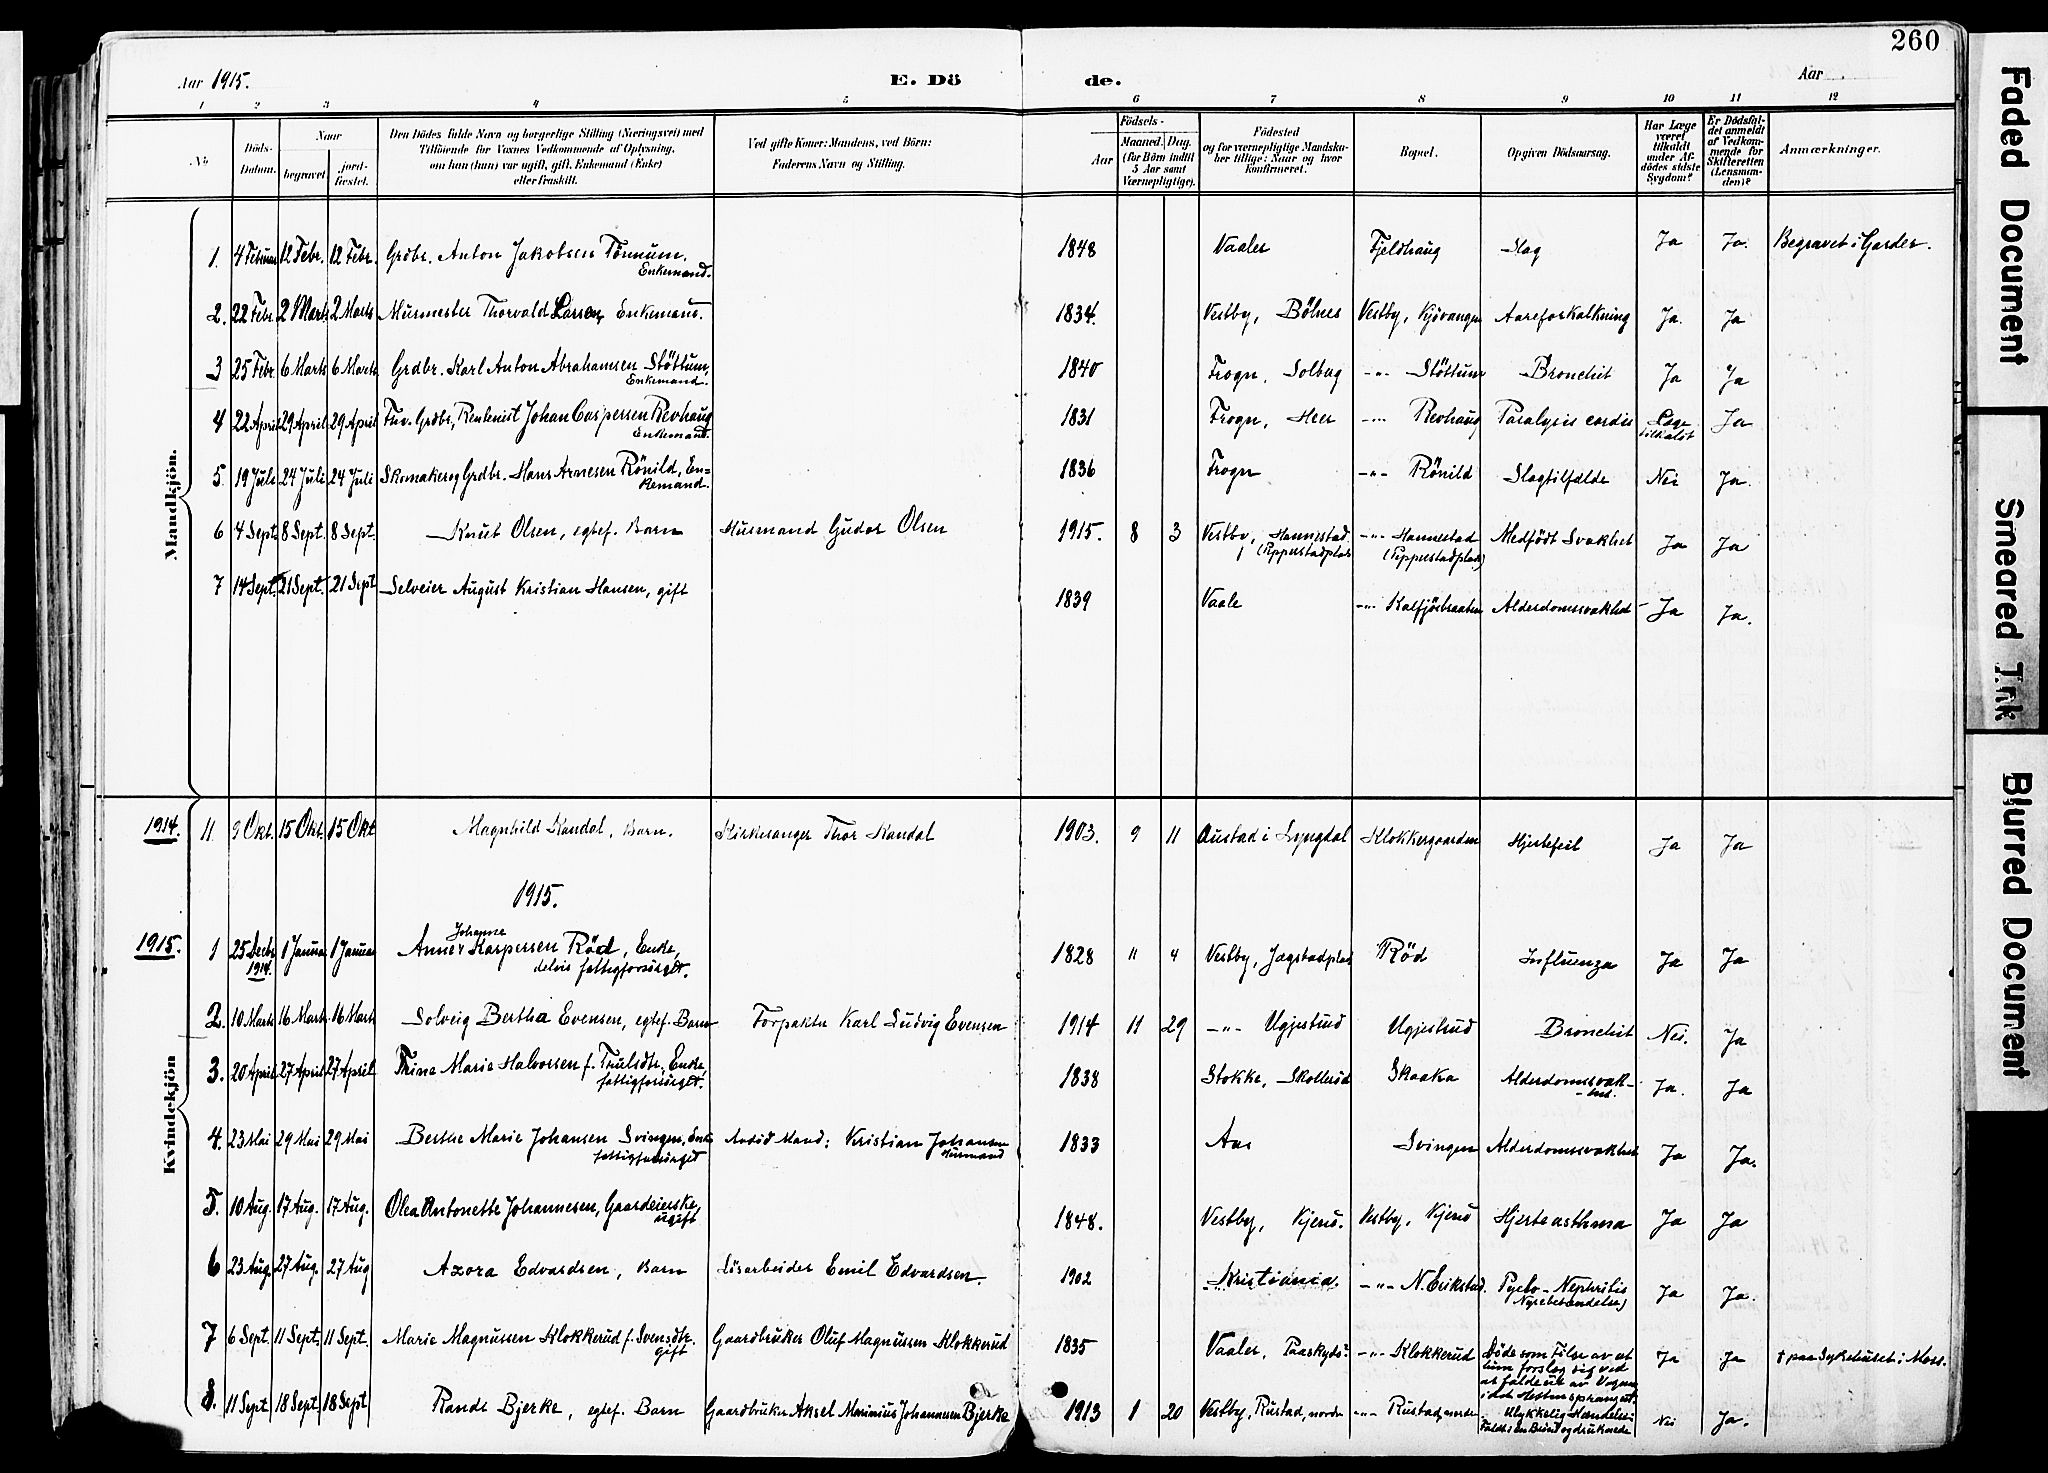 260
Aar 1915. E. Döde. Aar
1 2 3 4 5 6 7 8 9 10 11 12
No
Döds-Datum.
Naar
begravet
jord-fæstet.
Den Dödes fulde Navn og borgerlige Stilling (Næringsvei) med
Tilföiende for Voxnes Vedkommende af Oplysning,
om han (hun) var ugift, gift, Enkemand (Enke)
eller fraskilt.
Ved gifte Koner: Mandens, ved Börn:
Faderens Navn og Stilling.
Födsels-
Aar
Maaned. Dag.
(for Börn indtil
5 Aar samt
Værnepligtige).
Födested
og for værnepligtige Mandska-
ber tillige: Naar og hvor
konfirmeret.
Bopæl.
Opgiven Dödsaarsag.
Har Læge
været
tilkaldt
under Af-
dödes sidste
Sygdom?
Er Dödsfal-
det anmeldt
af Vedkom-
mende for
Skifteretten
(Lensman-
den)?
Anmærkninger.
Mandkjön.
1. 4 Februar 12 Febr. 12 Febr. Grdbr. Anton Jakobsen Tömum. Enkemand. 1848 Vaaler Fjeldhaug Slag Ja Ja. Begravet i Garder.
2. 22 Febr. 2 Marts 2 Marts Murmester Thorvald Larsen, Enkemand. 1834. Vestby, Bölnes Vestby, Kjövangen Aareforkalkning Ja. Ja
3 25 Febr. 6 Marts 6 Marts Grdbr. Karl Anton Abrahamsen Stöttum, Enkemand. 1840 Frogn, Solbug -"- Stöttum Bronchit Ja Ja
4 22 April 29 April 29 April Fhv. Grdbr, Rentenist Johan Caspersen Revhaug Enkemand. 1831 Frogn, Heer -"- Revhaug Paralysis cordis Læge tilkaldt Ja
5. 19 Juli 24 Juli 24 Juli Skomaker og Grdbr. Hans Arnesen Rönild, Enkemand. 1836 Frogn -"- Rönild Slagtilfælde Nei Ja.
6 4 Sept. 8 Sept. 8 Sept. Knut Olsen, egtef. Barn Husmand Gudor Olsen 1915. 8 3 Vestby, Hannestad (Pepperstadplads -"- Hannestad (Pepperstadplads) Medfödt Svakhet Ja Ja
7 14 Sept. 21 Sept. 21 Sept Selveier August Kristian Hansen, gift 1839 Vaale -"- Kalfjösbraaten Alderdomssvakhet Ja Ja.
Kvindekjön
1914. 11 9 Okt. 15 Okt. 15 Okt Magnhild Kandal, Barn. Kirkesanger Thor Kandal 1903. 9 11 Austad i Lyngdal Klokkergaarden Hjertefeil Ja Ja
1915.
1915. 1 25 Decbr 1914. 1 Januar 1 Januar Anne Johanne Kaspersen Röd, Enke, delvis fattigforsörget. 1828 11 4 Vestby, Jagstadplads Röd Influenza Ja Ja
2. 10 Marts 16 Marts 16 Marts Solveig Bertha Evensen, egtef. Barn Forpakter Karl Ludvig Evensen 1914 11 29 -"- Ugjestrud Ugjestrud Bronchit Nei. Ja
3. 20 April 27 April 27 April Trine Marie Halvorsen f. Trulsdtr, Enke, fattigforsörget. 1838 Stokke, Skollerud Skaaka Alderdomssvakhet. Ja. Ja
4. 23 Mai 29 Mai 29 Mai Berthe Marie Johansen Svingen, Enke fattigforsörget Avdöd Mand: Kristian Johansen Husmand 1833 Aas Svingen Alderdomssvakhet Ja Ja.
5. 10 Aug. 17 Aug. 17 Aug. Olea Antonette Johannesen, Gaardeierske, ugift 1848. Vestby, Kjenn. Vestby, Kjenn Hjerteasthma Ja Ja
6 23 Aug. 27 Aug. 27 Aug Azora Edvardsen, Barn Lösarbeider Emil Edvardsen. 1902 Kristiania. -"- N. Erikstad. Pyelo-Nephritis Nyrebetændelse) Ja Ja.
7 6 Sept. 11 Sept. 11 Sept. Marie Magnussen Klokkerud f. Svensdtr. gift Gaardbruker Oluf Magnussen Klokkerud 1835 Vaaler, -"- Klokkerud Döde som Fölge av at hun forslog sig ved at falde ut av Vognen idet Hesten sprang ut. Ja Ja † paa Sykehuset i Moss.
8. 11 Sept 18 Sept 18 Sept Randi Bjerke, egtef. Barn Gaardbruker Aksel Marinius Johannesen Bjerke 1913 1 20 Vestby, Rustad, nordre -"- Rustad, nordre Ulykkelig Hændelse: Faldt i en Brönd og druknede Nei Ja.
Faded Document
Smeared Ink
Blurred Document